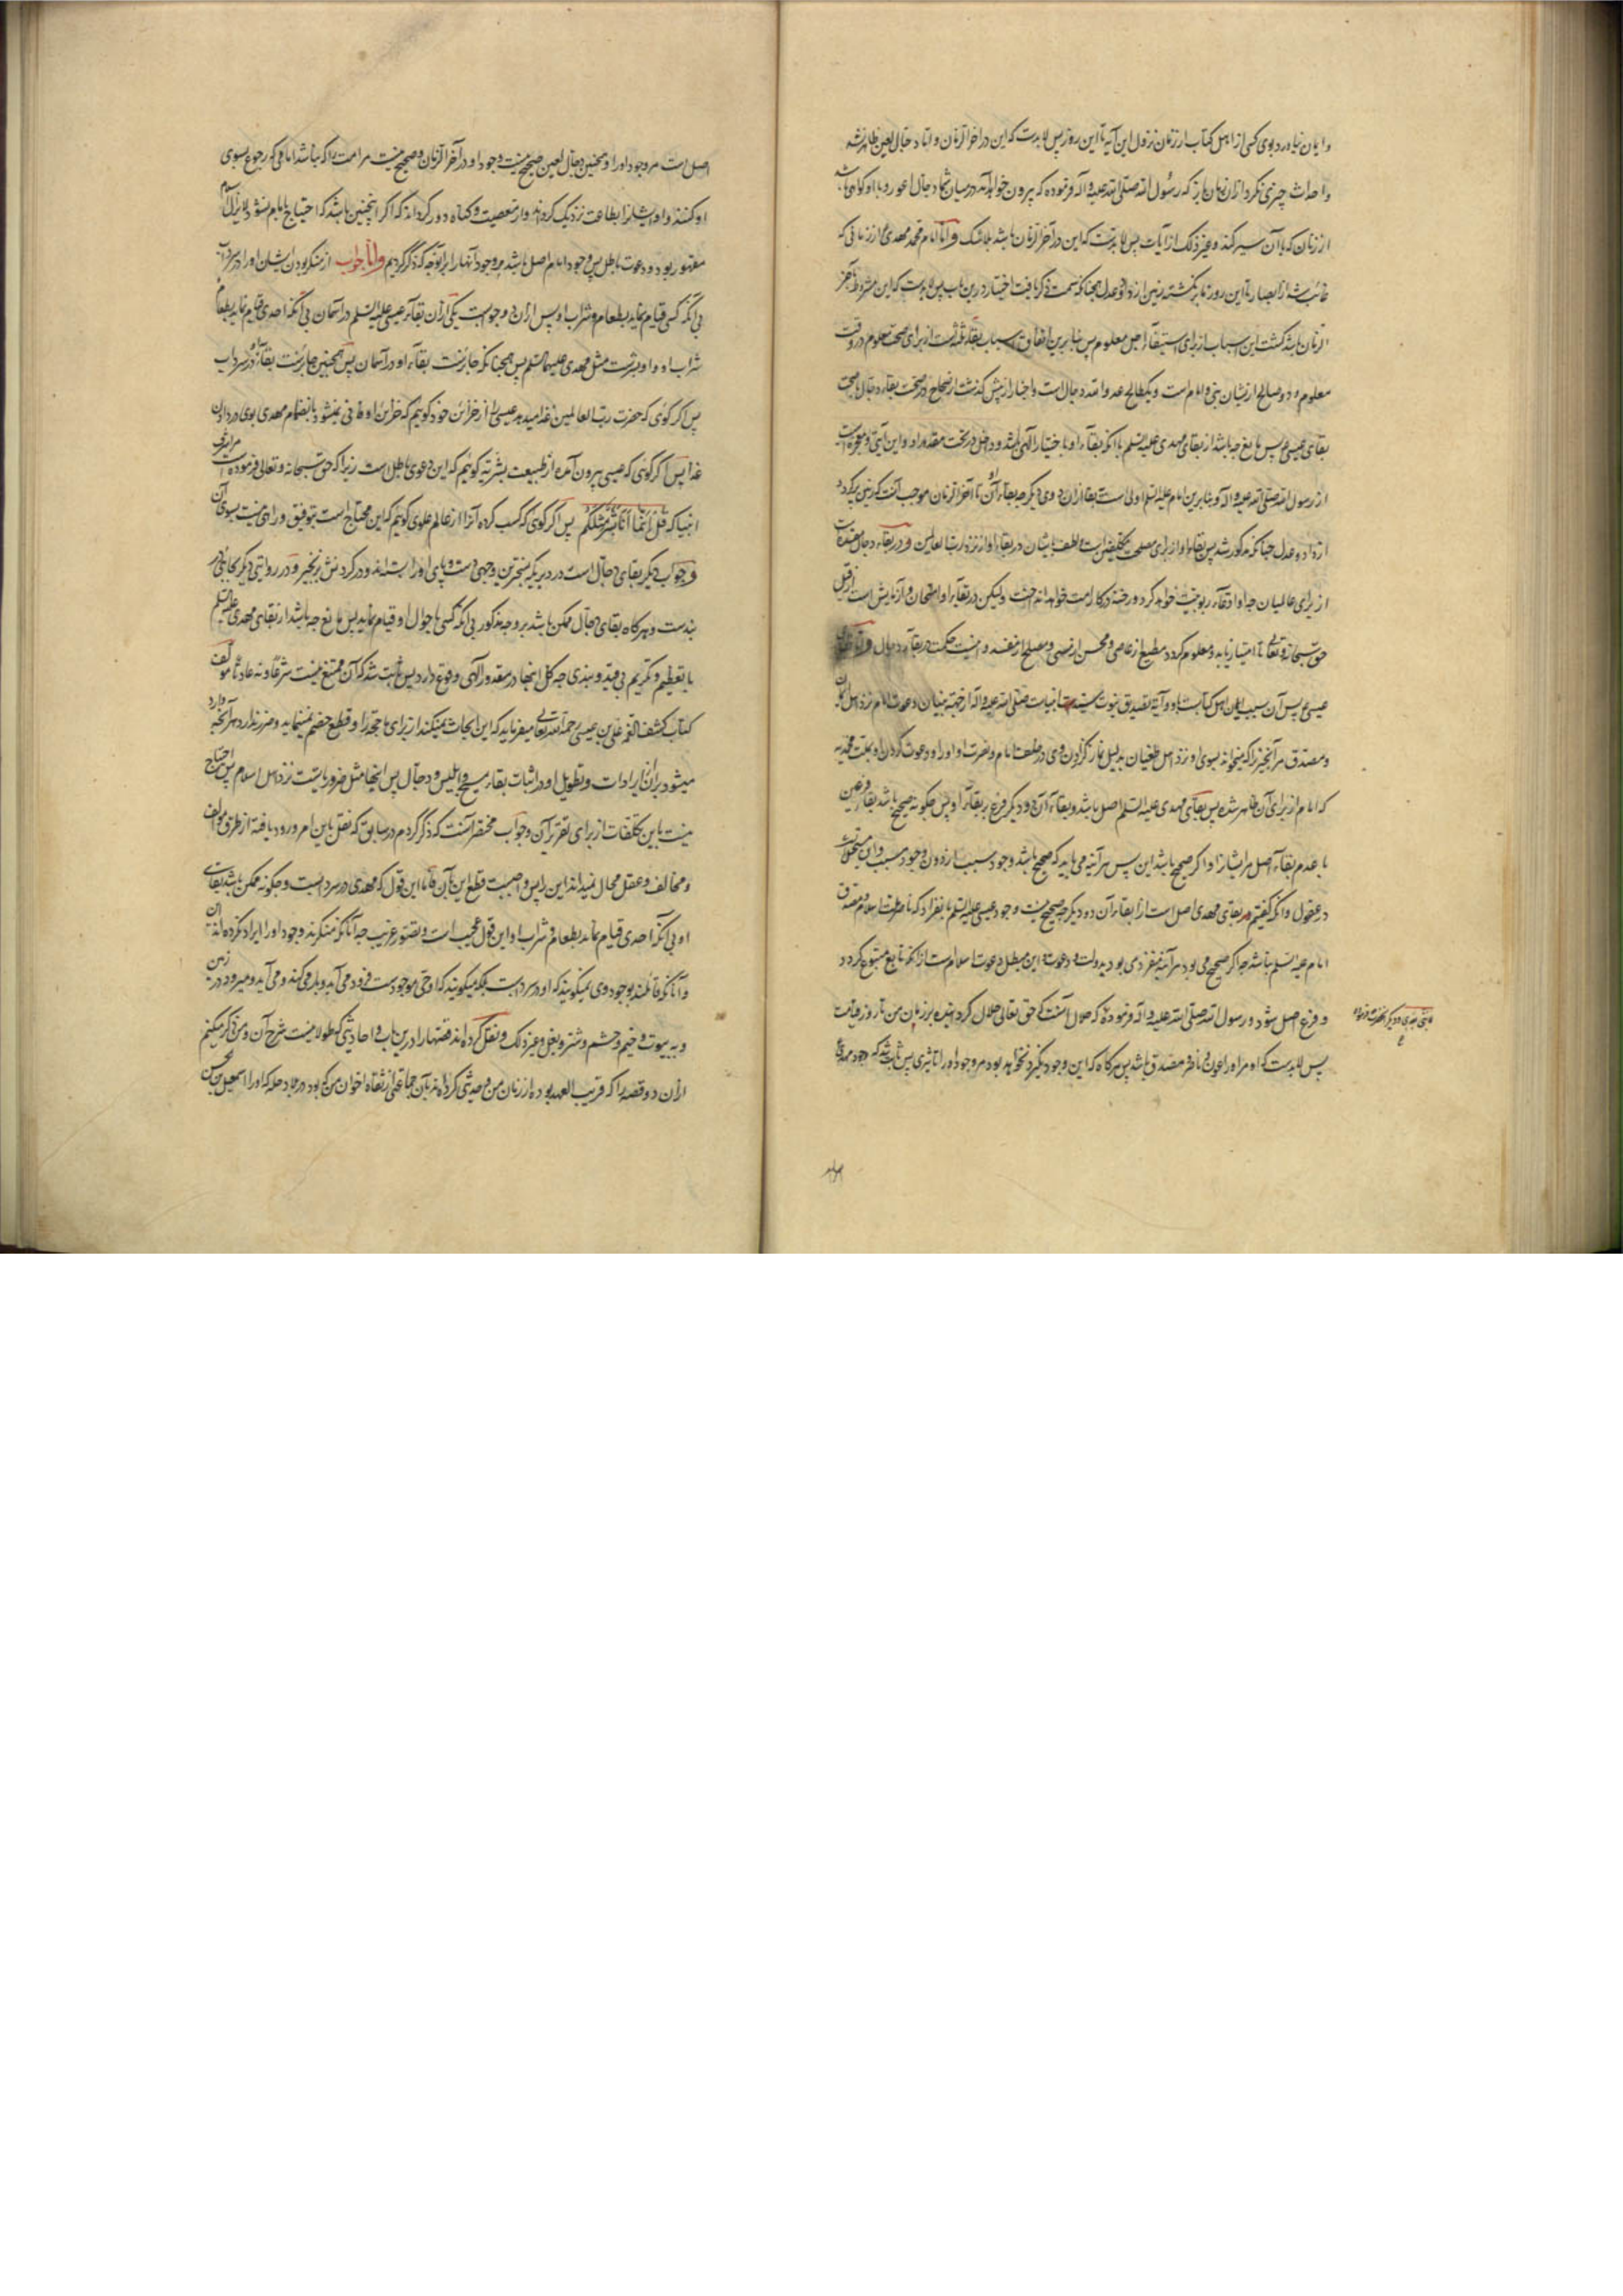 و ایمان نیاورد بوی کسی از اهل کتاب از زمان نزول این آیه تا این روز پس لابدست که این در آخر الزمان و اما دجال لعین ظاهر نشد
و احداث چیزی نکرد از آن زمان باز که رسول الله صلی الله علیه و آله فرموده که بیرون خواهد آمد در میان شما دجال اعور و با او کوهی باشد
از نان که با آن سیر کند و غیر ذلک از آیات پس لابدست که این در آخر الزمان باشد بلا شک و اما امام محمد مهدی از زمانی که
غائب شد از ابصار تا این روز نا پر نگشته زمین از داد و عدل همچنانکه سمت ذکر یافت اختیار درین باب پس لابدست که این مشروط بآخر
الزمان باشد گشت این اسباب از برای استیفاء اجل معلوم پس بنابرین اتفاق اسباب بقاء ثلثه است از برای صحت معلوم در وقت
معلوم و دو صالح از یشان نبی و امام است و یک طالح عدو الله دجال است و اخبار از پیش گذشت از صحاح در صحت بقاء دجال با صحت
بقای عیسی پس مانع چه باشد از بقای مهدی علیه السلم با آنکه بقاء او باختیار الهی باشد و داخل در تحت مقدور او و این آیتی و معجزه ایست
از رسول الله صلی الله علیه و آله و بنابرین امام علیه السلم اولی است ببقا از آن دوی دیگر چه بقاء او تا آخر الزمان موجب آنست که زمین پر گردد
از داد و عدل چنانکه مذکور شد پس بقاء او از برای مصلحت مکلفین است و لطف بایشان در بقاء او از نزد رب العالمین و در بقاء دجال مفسده ایست
از برای عالمیان چه او ادعاء ربوبیت خواهد کرد و رخنه در کار امت خواهد انداخت و لیکن در بقاء او امتحان و آزمایش است از قبل
حق سبحانه و تعالی تا امتیاز یابد و معلوم گردد مطیع از عاصی و محسن از مسی و مصلح از مفسد و اینست حکمت در بقاء دجال و اما بقای
عیسی پس آن سبب ایمان اهل کتابست باو و آیه تصدیق نبوت سید انبیاست صلی الله علیه و آله از جهة بنیان دعوت امام نزد اهل ایمان
و مصدق مر آنچیز را که میخواند بسوی او نزد اهل طغیان بدلیل نماز گزاردن وی در خلف امام و نصرت او او را و دعوت کردن او بملت محمدیه
که امام از برای آن ظاهر شده پس بقای مهدی علیه السلم اصل باشد و بقاء آن دو دیگر فرع بر بقاء او پس چگونه صحیح باشد بقاء فرعین
با عدم بقاء اصل مر ایشانرا و اگر صحیح باشد این پس هر آینه می باید که صحیح باشد وجود مسبب از دون وجود سبب و این مستحیلست
در عقول و آنکه گفتیم که بقای مهدی اصل است از بقاء آن دو دیگر چه صحیح نیست وجود عیسی علیه السلم بانفراد که ناصر ملت اسلام و مصدق
امام علیه السلم نباشد چه اگر صحیح می بود هر آینه منفرد می بود بدولت و دعوت و این مبطل دعوت اسلام است از آنکه تابع متبوع گردد
و فرع اصل شود و رسول الله صلی الله علیه و آله فرموده که حلال آنست که حق تعالی حلال کرد بنده بر زبان من تا روز قیامت
پس لابدست که او مر او را عون و ناصر و مصدق باشد پس هرگاه که این وجود نگیرد نخواهد بود مر وجود او را تاثیری پس ثابت شد که وجود مهدی
اصل است مر وجود او را و همچنین دجال لعین صحیح نیست وجود او در آخر الزمان و صحیح نیست مر امت را که نباشد امامی که رجوع بسوی
او کنند و او ایشانرا بطاعت نزدیک گرداند و از معصیت و گناه دور گرداند که اگر اینچنین باشد که احتیاج بامام نشود لا یزال اسلام
مقهور بود و دعوت باطل پس وجود امام اصل باشد مر وجود آنها را برانوجه که ذکر کردیم و اما جواب از منکر بودن ایشان او را در سرداب
بی آنکه کسی قیام نماید بطعام و شراب او پس از آن دو جوابست یکی از آن بقاء عیسی علیه السلم در آسمان بی آنکه احدی قیام نماید بطعام
شراب او و او بشرست مثل مهدی علیهما السلم پس همچنانکه جایزست بقاء او در آسمان پس همچنین جایزست بقاء او در سرداب
پس اگر گوئی که حضرت رب العالمین غذا میدهد عیسی را از خزائن خود گوییم که خزاین او فانی نمیشود بانضمام مهدی بوی در دادن
غذا پس اگر گوئی که عیسی بیرون آمده از طبیعت بشریه گوئیم که این دعوی باطل است زیرا که حق سبحانه و تعالی فرموده مر اشرف
انبیا که قل انما انا بشر مثلکم پس اگر گوئی که کسب کرده آنرا از عالم علوی گوئیم که این محتاج است بتوفیق و راهی نیست بسوی آن
و جواب دیگر بقای دجال است در دیر بر سخت ترین وجهی دست و پای او را بسته اند و در گردنش زنجیر و در روایتی دیگر چاهی در
بندست و هرگاه بقای دجال ممکن باشد بر وجه مذکور بی آنکه کسی باحوال او قیام نماید پس مانع چه باشد از بقای مهدی علیه السلم
با تعظیم و تکریم بی قید و بندی چه کل اینها در مقدور الهی وقوع دارد پس ثابت شد که آن ممتنع نیست شرعا و نه عادتا مولف
کتاب کشف الغمه علی بن عیسی رحمه الله تعالی میفرماید که این ابحاث نمیکند از برای ما حجتی را و قطع خصم نمینماید و ضرر ندارد هر آنچه وارد
میشود بر آن از ایرادات و تطویل او در اثبات بقاء مسیح و ابلیس و دجال پس اینها مثل ضروریاتست نزد اهل اسلام پس احتیاج
نیست باین تکلفات از برای تقریر آن و جواب مختصر آنست که ذکر کردم در سابق که نقل باین امر ورود یافته از طرق مؤلف
و مخالف و عقل محال نمیداند این را پس واجبست قطع این بآن فاما این قول که مهدی در سردابست و چگونه ممکن باشد بقای
او بی آنکه احدی قیام نماید بطعام و شراب او این قول عجیب است و تصور غریب چه آنانکه منکرند وجود او را ایراد نکرده اند این
و آنانکه قائلند بوجود وی نمیگویند که او در سردابست بلکه میگویند که او حی موجودست فرود می آید و بار میکند و می آید و میرود در زمین
و به بیوت و خیم و حشم و شتر و بغل و غیر ذلک و نقل کرده اند قصتها را درین باب و احادیثی که طولانیست شرح آن و من ذکر میکنم
از آن دو قصه را که قریب العهد بوده از زمان من و حدیث کرده مرا بآن جماعتی از ثقاة اخوان من که بود در بلاد حله که او را اسمعیل بن حسن